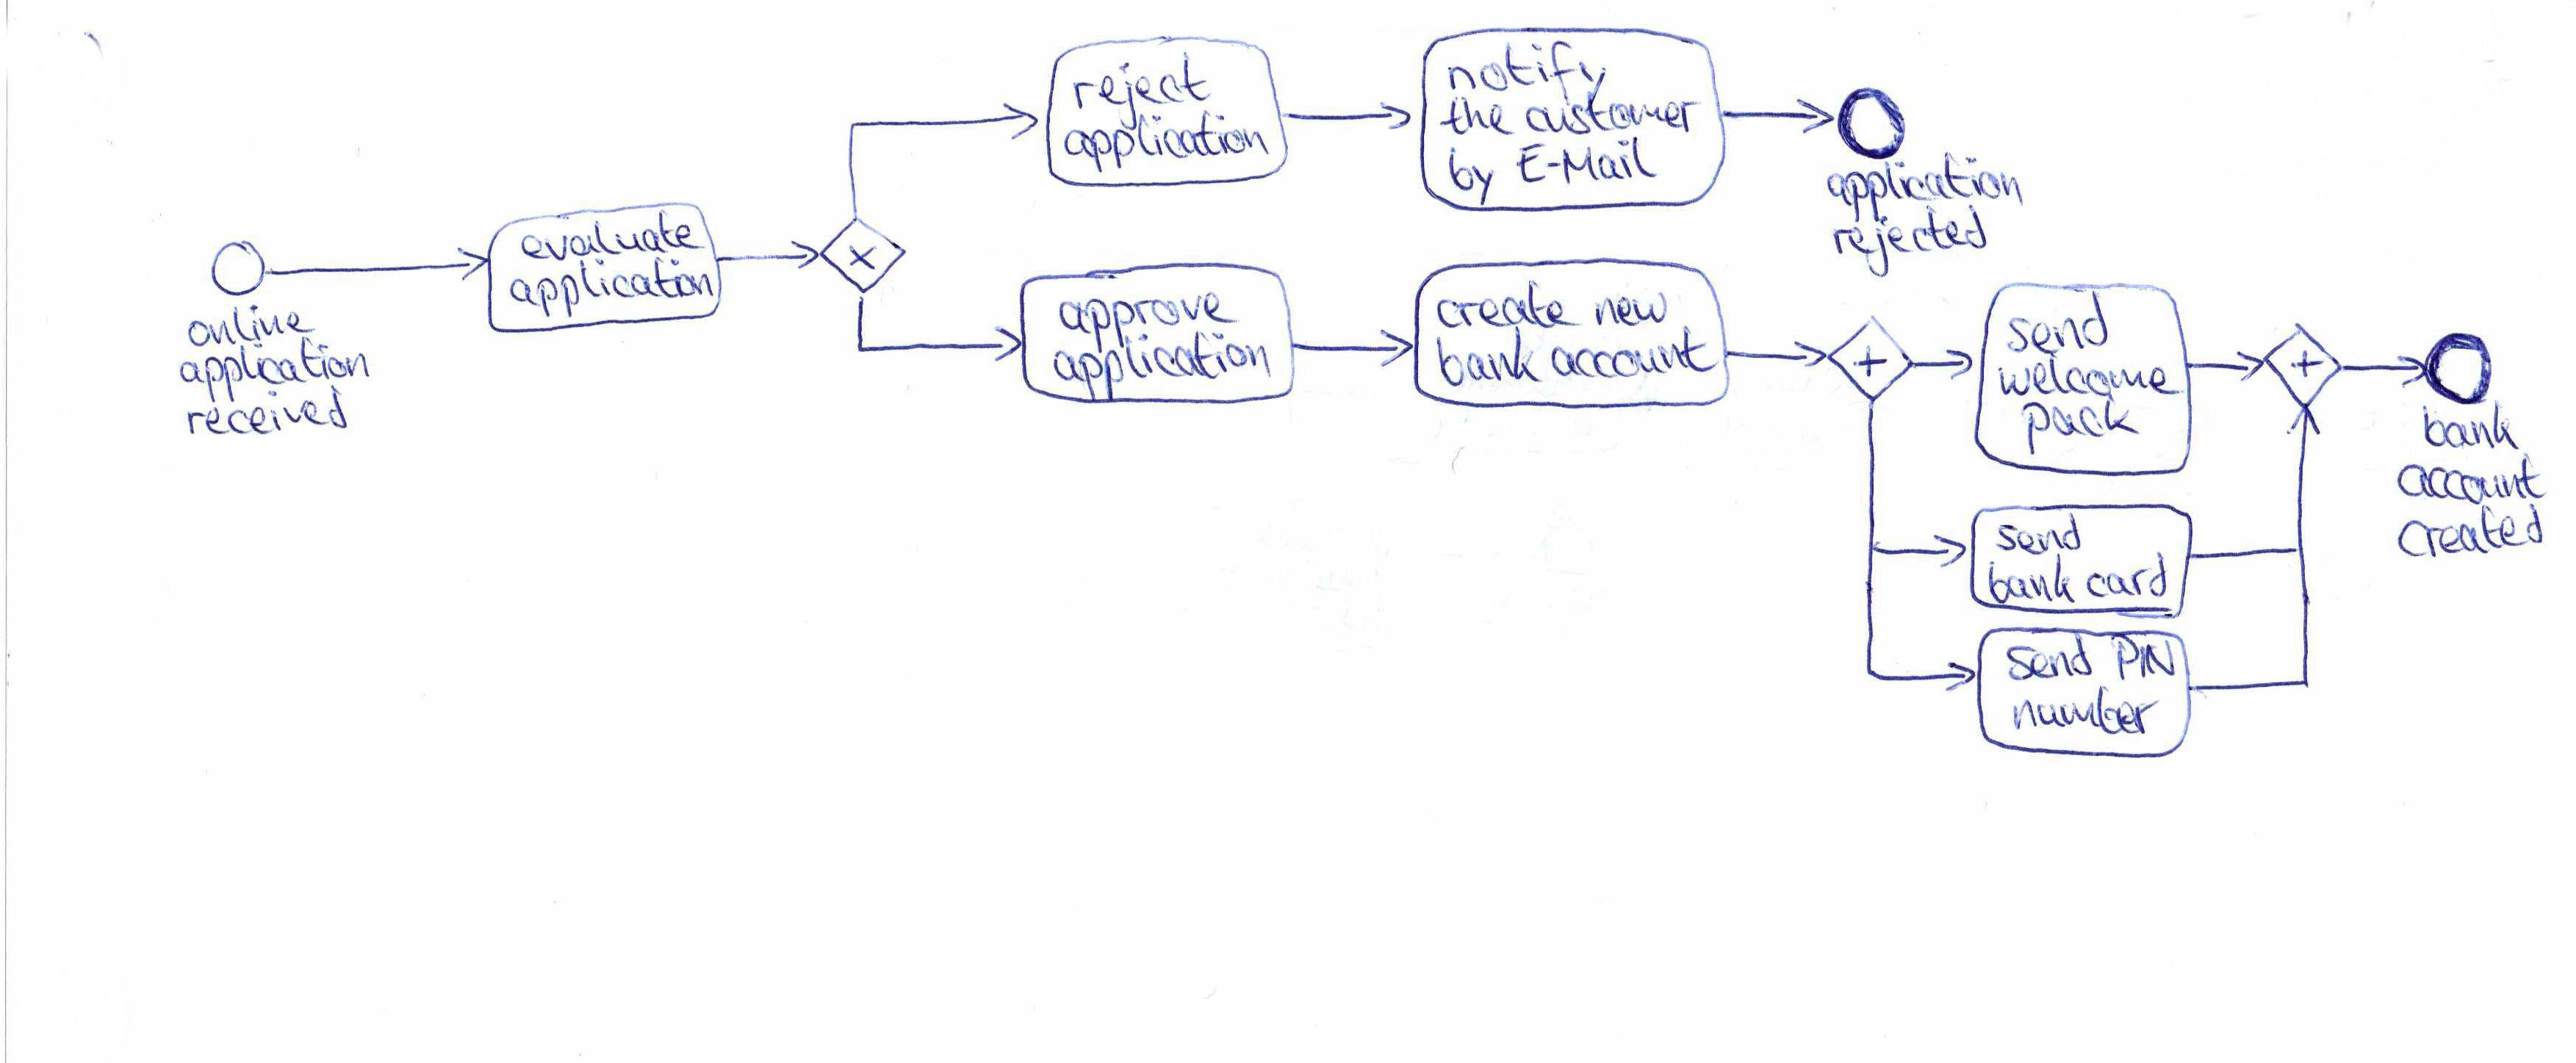 online
application
received
evaluate
application
reject
application
notify
the customer
by E-Mail
application
rejected
approve
application
create new
bank account
send
welcome
pack
send
bank card
send PIN
number
bank
account
created